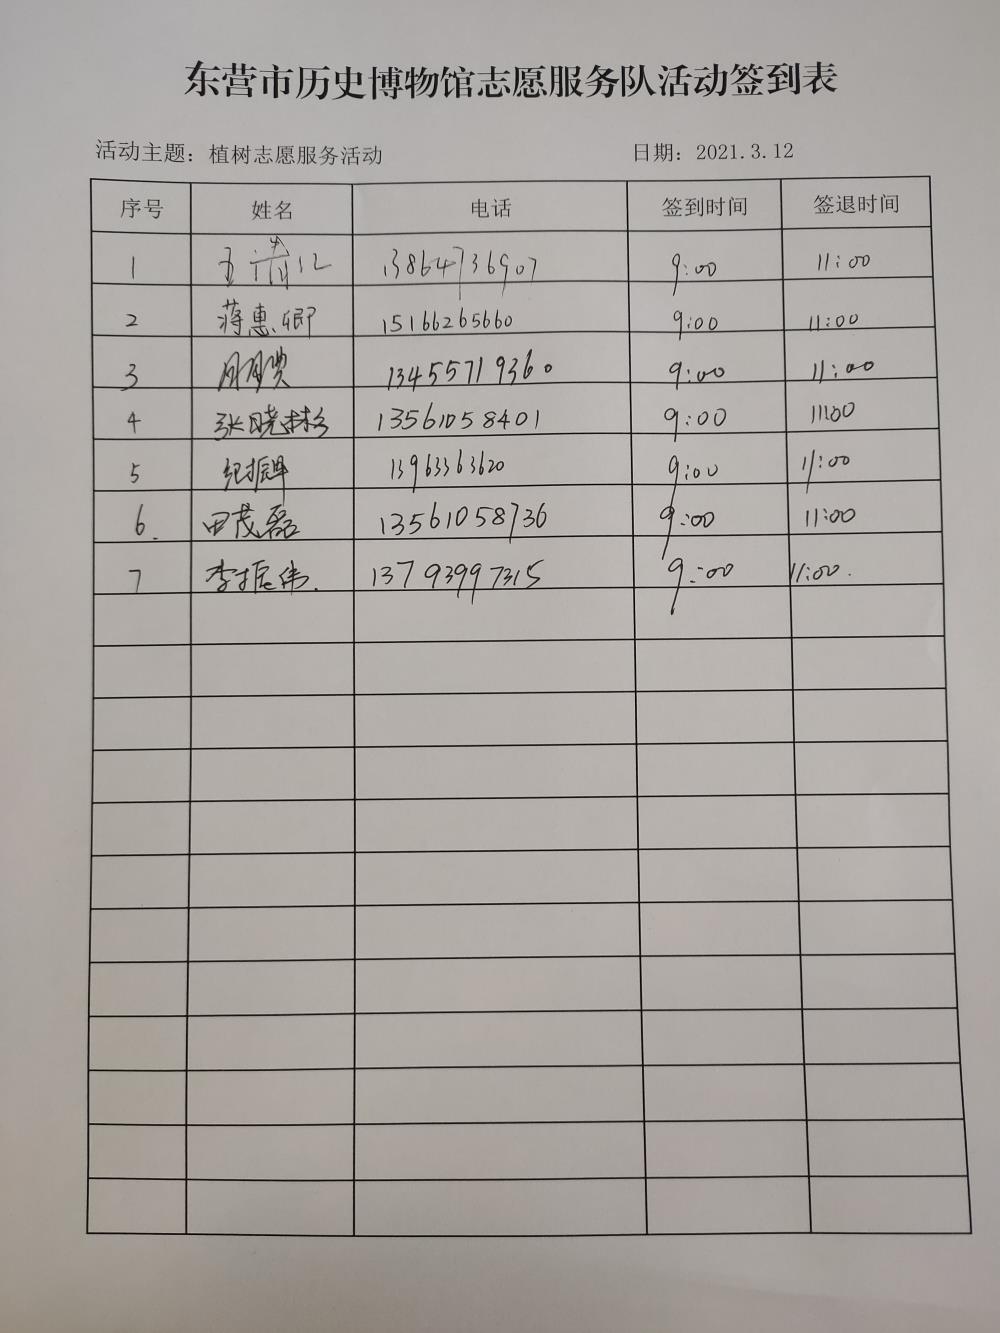 东营市历史博物馆志愿服务队活动签到表
活动主题：植树志愿服务活动 日期：2021.3.12
序号 姓名 电话 签到时间 签退时间
1 13864736907 9:00 11:00
2 蒋惠卿 15166265660 9:00 11:00
3 13455719360 9:00 11:00
4 张晓彬 13561058401 9:00 11:00
5 纪振 13963363620 9:00 11:00
6. 田茂磊 13561058736 9:00 11:00
7 李振伟. 13793997315 9:00 11:00.